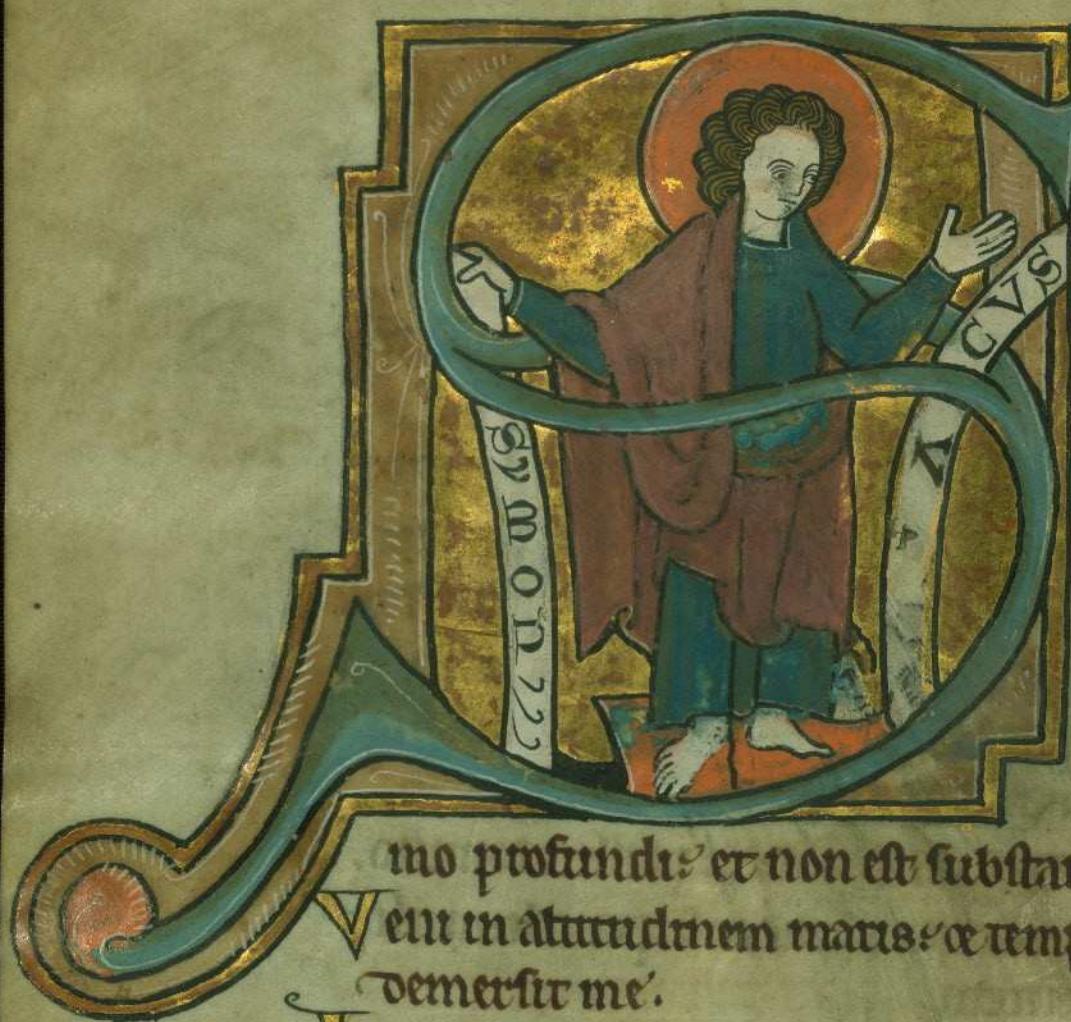 SYMON
CVS
mo profundi: et non est substa
Veni in altitudinem maris: et tem
demersit me.